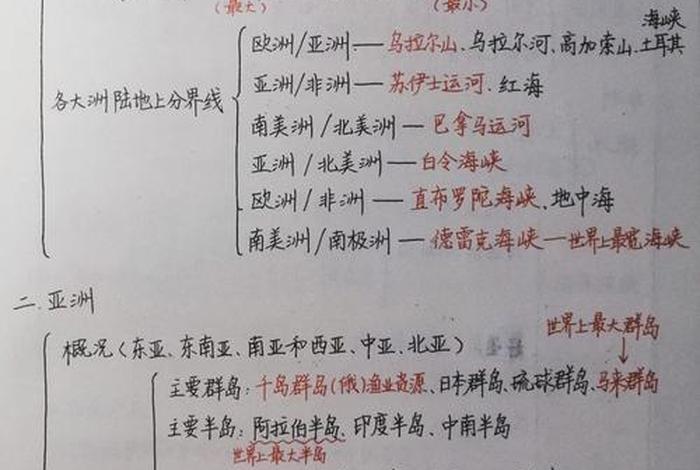 (最大) (最小)
海峡
欧洲/亚洲——乌拉尔山、乌拉尔河、高加索山、土耳其
亚洲/非洲——苏伊士运河、红海
各大洲陆地上分界线
南美洲/北美洲——巴拿马运河
亚洲/北美洲——白令海峡
欧洲/非洲——直布罗陀海峡、地中海
南美洲/南极洲——德雷克海峡—世界上最宽海峡
二.亚洲
世界上最大群岛
概况(东亚、东南亚、南亚和西亚、中亚、北亚)
主要群岛:千岛群岛(俄)渔业资源、日本群岛、琉球群岛、马来群岛
主要半岛:阿拉伯半岛、印度半岛、中南半岛
世界上最大半岛